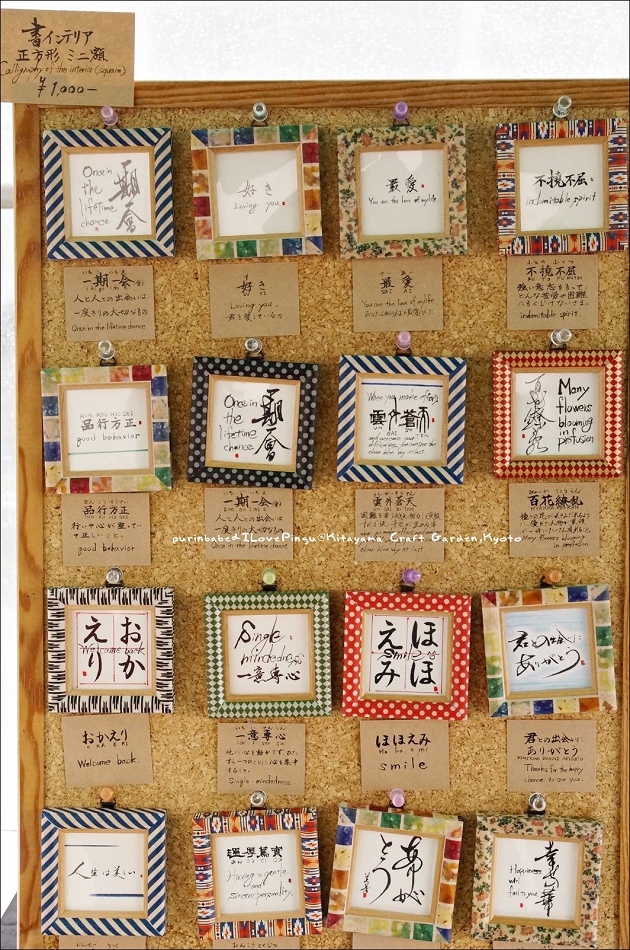 書インテリア
正方形 ミニ額
Calligraphy of the interia (square)
¥1,000-
Once in
the
lifetime
chance
一期一会
好き
Loving you.
最愛
You are the love of my life
不撓不屈
indomitable spirit
一期一会
人と人との出会いは
一度きりの大切なもの
Once in the lifetime chance
好き
Loving you.
最愛
You are the love of my life
不撓不屈
強い意志をもって
どんな苦労や困難
にもくじけないさま。
indomitable spirit.
HIN KOU HOU SEI
品行方正
good behavior
Once in
the
lifetime
chance
一期一会
雲外蒼天
百花繚乱
Many
flowers
blooming
in
profusion
品行方正
行いや心が整ってい
て正しいこと。
good behavior
一期一会
人と人との出会いは
一度きりの大切なもの
Once in the lifetime chance
雲外蒼天
百花繚乱
Many flowers blooming
in profusion
purinbabed ILovePingu@Kitayama Craft Garden,Kyoto
おかえり
Welcome back
Single
mindedness
一意専心
ほほえみ
Smile
君との出会いに
ありがとう
おかえり
Welcome back
一意専心
Single mindedness
ほほえみ
Ho ho e mi
smile
君との出会いに
ありがとう
Thanks for the happy
chance to see you.
人生は美しい
温厚篤実
Having a gentle
and
sincere personality.
ありがとう
Happiness